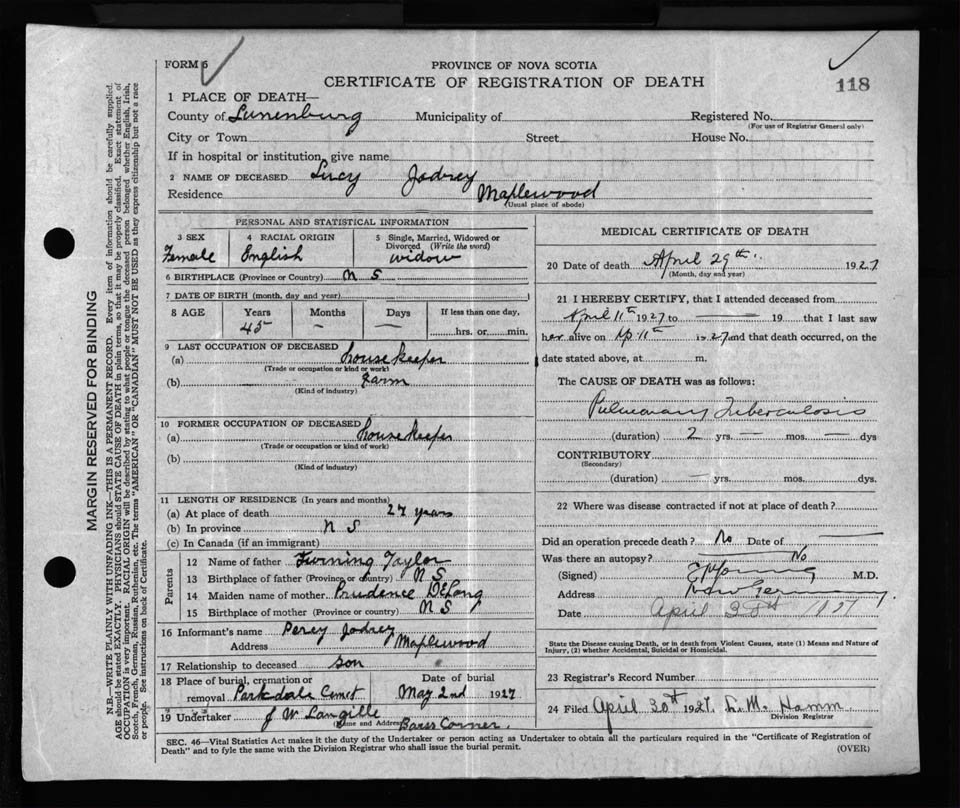 FORM 6
PROVINCE OF NOVA SCOTIA
CERTIFICATE OF REGISTRATION OF DEATH
118
1 PLACE OF DEATH—
County of Lunenburg Municipality of Registered No.
(For use of Registrar General only)
City or Town Street House No.
If in hospital or institution, give name
2 NAME OF DECEASED Lucy Jodrey
Residence Maplewood
(Usual place of abode)
PERSONAL AND STATISTICAL INFORMATION
3 SEX 4 RACIAL ORIGIN 5 Single, Married, Widowed or Divorced (Write the word)
Female English widow
6 BIRTHPLACE (Province or Country) N S
7 DATE OF BIRTH (month, day and year)
8 AGE Years Months Days If less than one day,
45 — — hrs. or min.
9 LAST OCCUPATION OF DECEASED
(a) housekeeper
(Trade or occupation or kind or work)
(b) Farm
(Kind of industry)
10 FORMER OCCUPATION OF DECEASED
(a) housekeeper
(Trade or occupation or kind of work)
(b)
(Kind of industry)
11 LENGTH OF RESIDENCE (In years and months)
(a) At place of death 27 years
(b) In province N S
(c) In Canada (if an immigrant)
Parents
12 Name of father Taylor
13 Birthplace of father (Province or country) N S
14 Maiden name of mother Prudence DeLong
15 Birthplace of mother (Province or country) N S
16 Informant's name Percy Jodrey
Address Maplewood
17 Relationship to deceased son
18 Place of burial, cremation or removal Parkdale Cemet Date of burial May 2nd 1927
19 Undertaker J W Langille
Name and Address Barss Corner.
MEDICAL CERTIFICATE OF DEATH
20 Date of death April 29th 1927
(Month, day and year)
21 I HEREBY CERTIFY, that I attended deceased from
April 11th 1927 to — 19 that I last saw
her alive on Ap 11th is 27 and that death occurred, on the
date stated above, at m.
The CAUSE OF DEATH was as follows:
Pulmonary Tuberculosis
(duration) 2 yrs. — mos. — dys
CONTRIBUTORY
(Secondary)
(duration) — yrs. mos. dys.
22 Where was disease contracted if not at place of death?
Did an operation precede death? No Date of —
Was there an autopsy? No
(Signed) M.D.
Address New Germany
Date April 30th 1927
State the Disease causing Death, or in death from Violent Causes, state (1) Means and Nature of
Injury, (2) whether Accidental, Suicidal or Homicidal.
23 Registrar's Record Number
24 Filed April 30th 1927. L. M. Hamm
Division Registrar
SEC. 46—Vital Statistics Act makes it the duty of the Undertaker or person acting as Undertaker to obtain all the particulars required in the "Certificate of Registration of
Death" and to fyle the same with the Division Registrar who shall issue the burial permit.
(OVER)
MARGIN RESERVED FOR BINDING
N.B.—WRITE PLAINLY WITH UNFADING INK—THIS IS A PERMANENT RECORD. Every item of information should be carefully supplied.
AGE should be stated EXACTLY. PHYSICIANS should STATE CAUSE OF DEATH in plain terms, so that it may be properly classified. Exact statement of
OCCUPATION is very important. RACIAL ORIGIN will be described by stating to what people or tongue the deceased person belonged whether English, Irish,
Scotch, French, German, Russian, Ruthenian, etc. The terms "AMERICAN" OR "CANADIAN" MUST NOT BE USED as they express citizenship but not a race
or people. See instructions on back of Certificate.